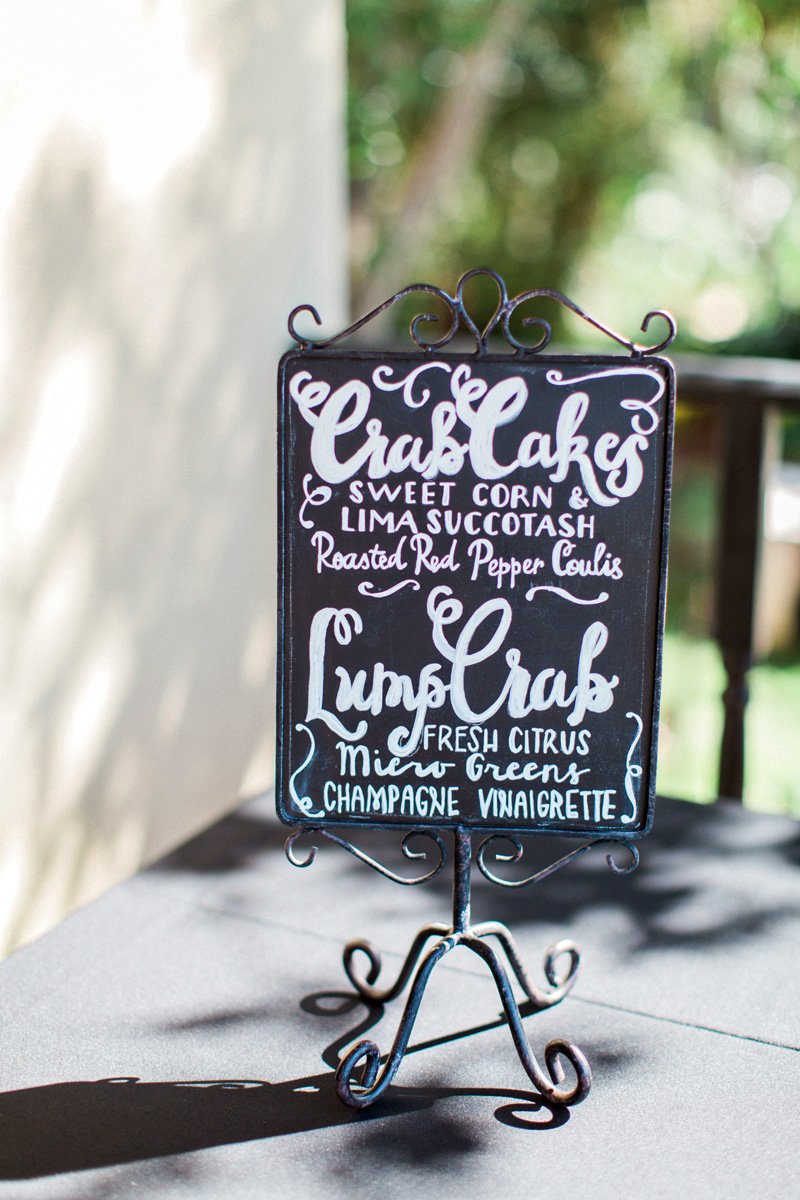 Crab Cakes
SWEET CORN &
LIMA SUCCOTASH
Roasted Red Pepper Coulis
Lump Crab
FRESH CITRUS
Micro Greens
CHAMPAGNE VINAIGRETTE